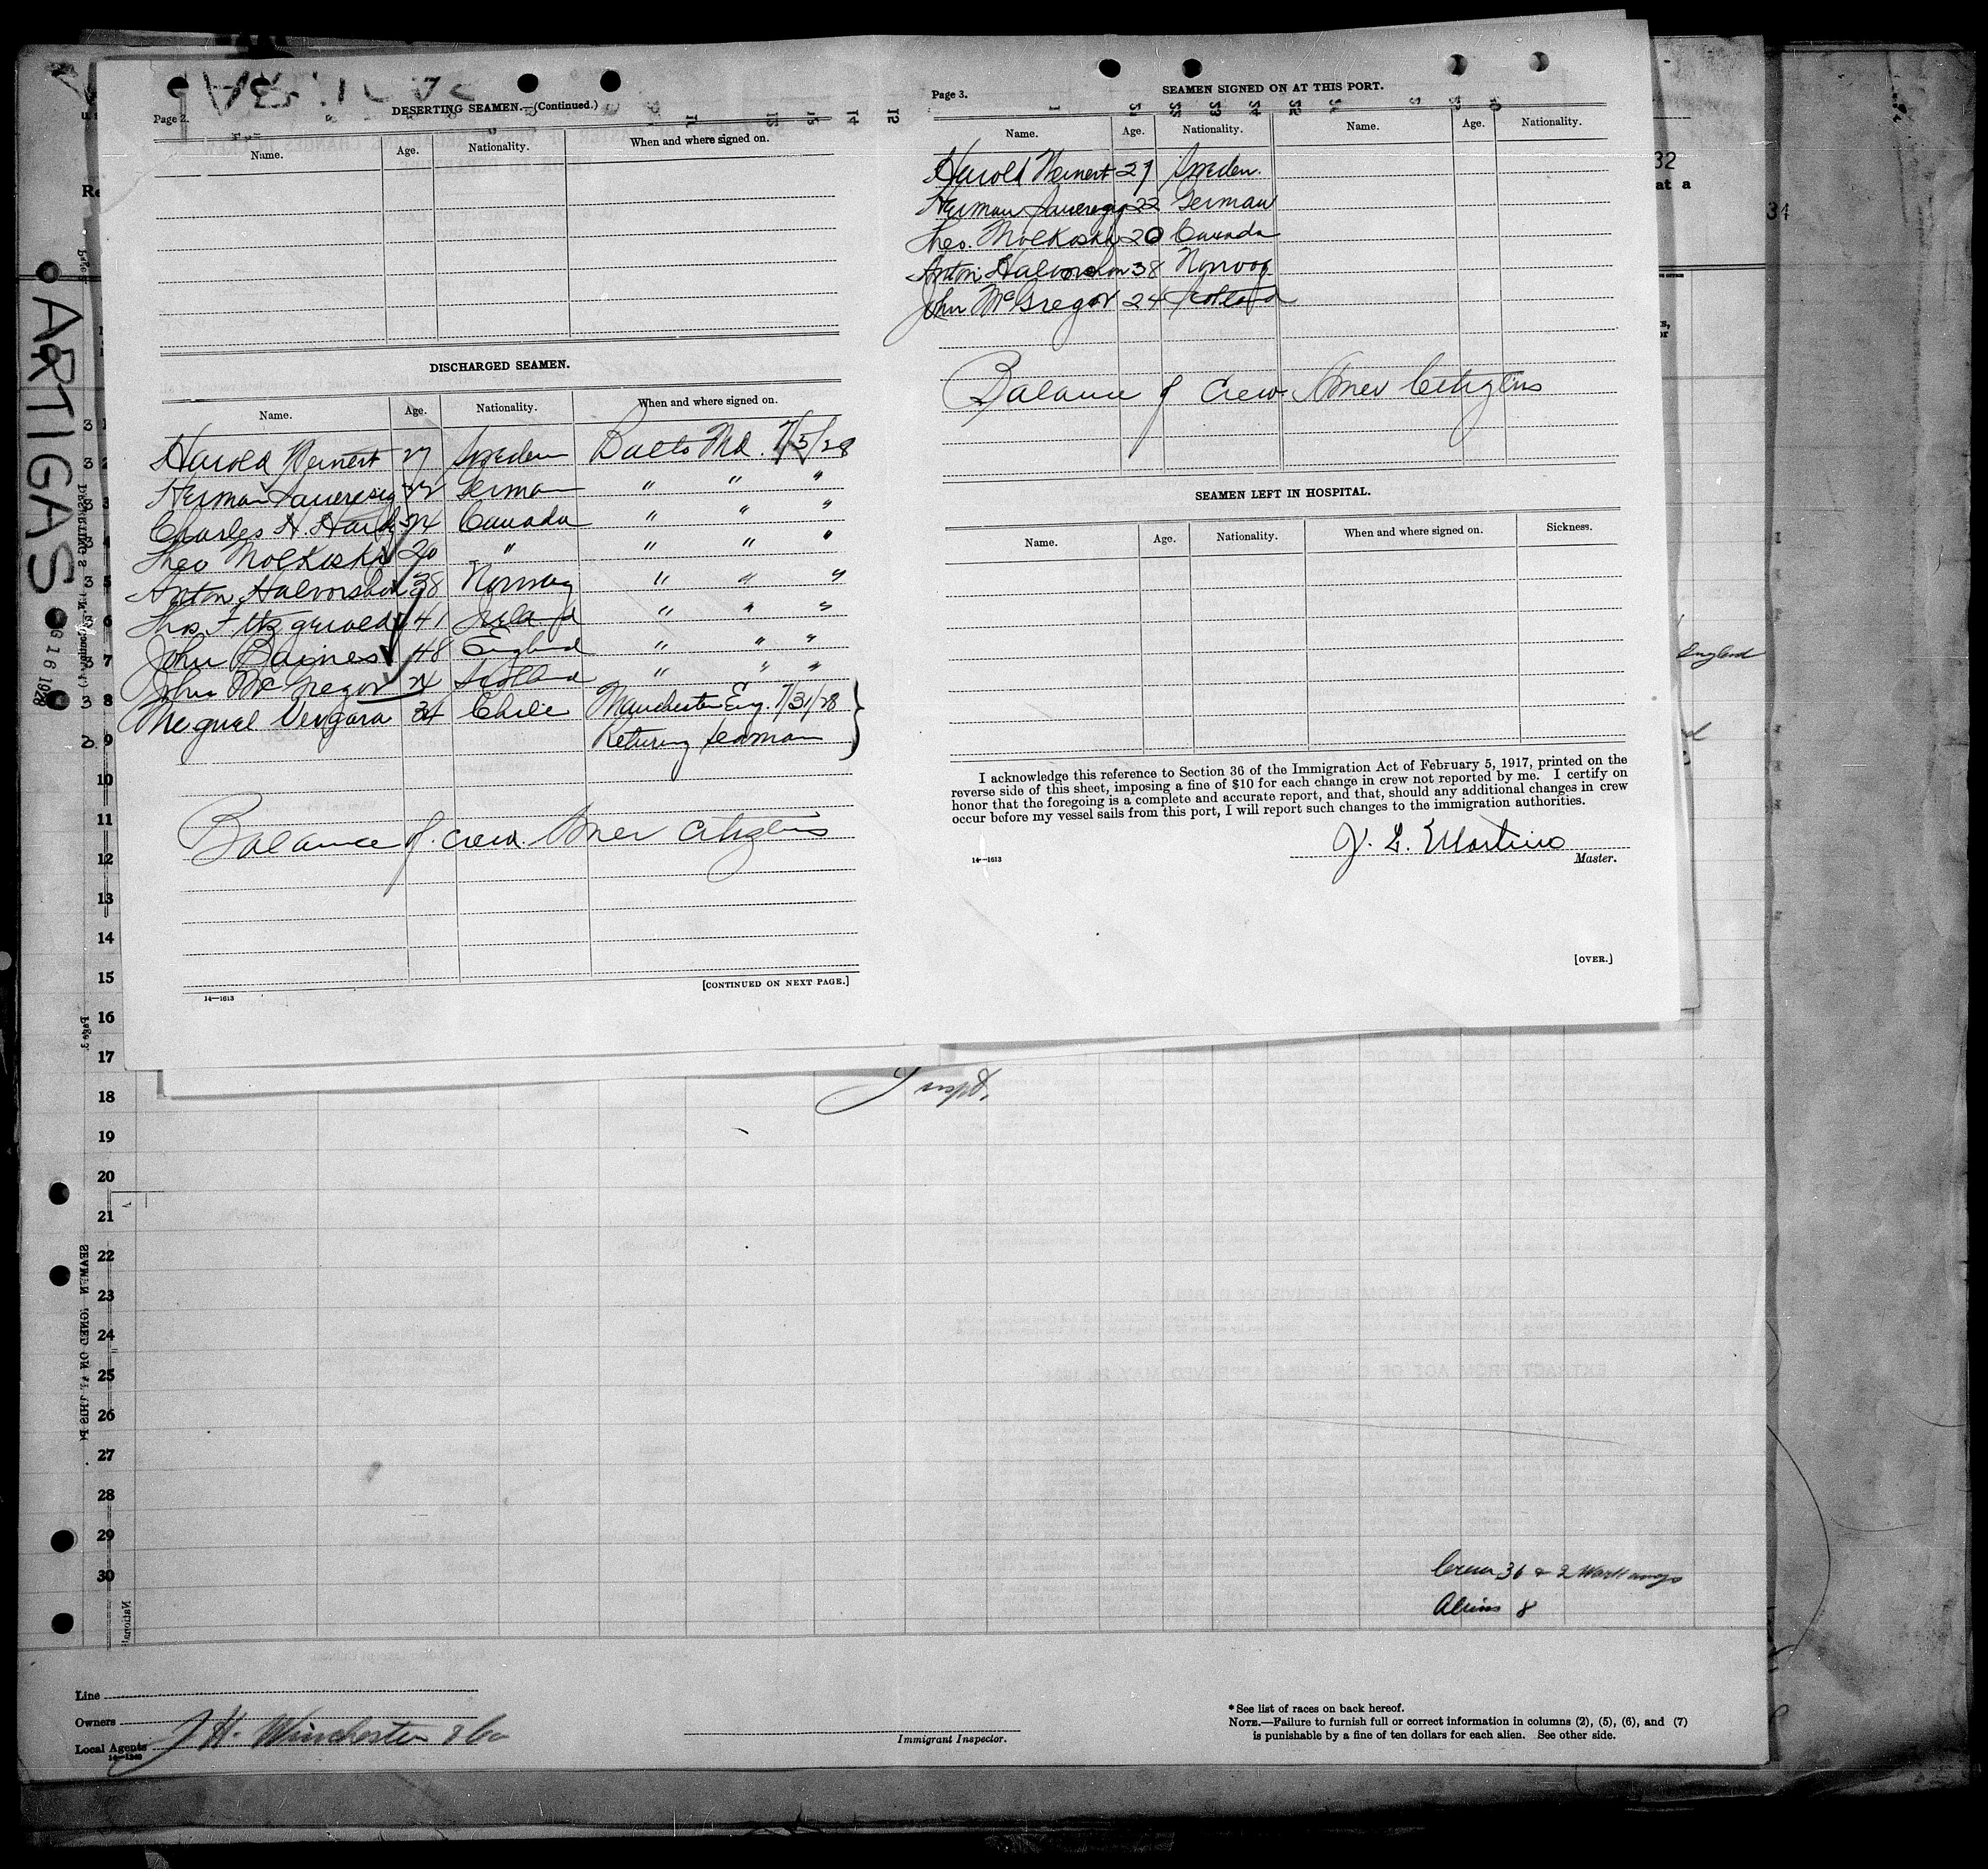 Page 2.
DESERTING SEAMEN.—(Continued.)
Name. Age. Nationality. When and where signed on.
DISCHARGED SEAMEN.
Name. Age. Nationality. When and where signed on.
Harold Weinert 27 Sweden Balto Md. 7/5/28
Herman 22 German " " "
Charles H. Hardy 24 Canada " " "
Theo Molkoski 20 " " " "
Anton Halvorshon 38 Norway " " "
Thos. Fitzgerald 41 Ireland " " "
John Baines 48 England " " "
John McGregor 24 Scotland " " "
Meguel Vergara 34 Chile Manchester Eng. 7/31/28
Returing seaman
Balance of crew. Amer citizens
[CONTINUED ON NEXT PAGE.]
14—1613
Page 3.
SEAMEN SIGNED ON AT THIS PORT.
Name. Age. Nationality. Name. Age. Nationality.
Harold Weinert 27 Sweden.
Herman 22 German
Theo. Molkoski 20 Canada
Anton Halvorshon 38 Norway
John McGregor 24 Scotland
Balance of Crew Amer Citizens
SEAMEN LEFT IN HOSPITAL.
Name. Age. Nationality. When and where signed on. Sickness.
I acknowledge this reference to Section 36 of the Immigration Act of February 5, 1917, printed on the
reverse side of this sheet, imposing a fine of $10 for each change in crew not reported by me. I certify on
honor that the foregoing is a complete and accurate report, and that, should any additional changes in crew
occur before my vessel sails from this port, I will report such changes to the immigration authorities.
J. L. Martino
14—1613 Master.
[OVER.]
ARTIGAS
G 16 1928
32
at a
34
England
1
2
3
4
5
6
7
8
9
10
11
12
13
14
15
16
17
18
19
20
21
22
23
24
25
26
27
28
29
30
Crew 36 & 2 Workaways
Aliens 8
Line
Owners
Local Agents J H. Winchester & Co
14—1240
Immigrant Inspector.
* See list of races on back hereof.
NOTE.—Failure to furnish full or correct information in columns (2), (5), (6), and (7)
is punishable by a fine of ten dollars for each alien. See other side.